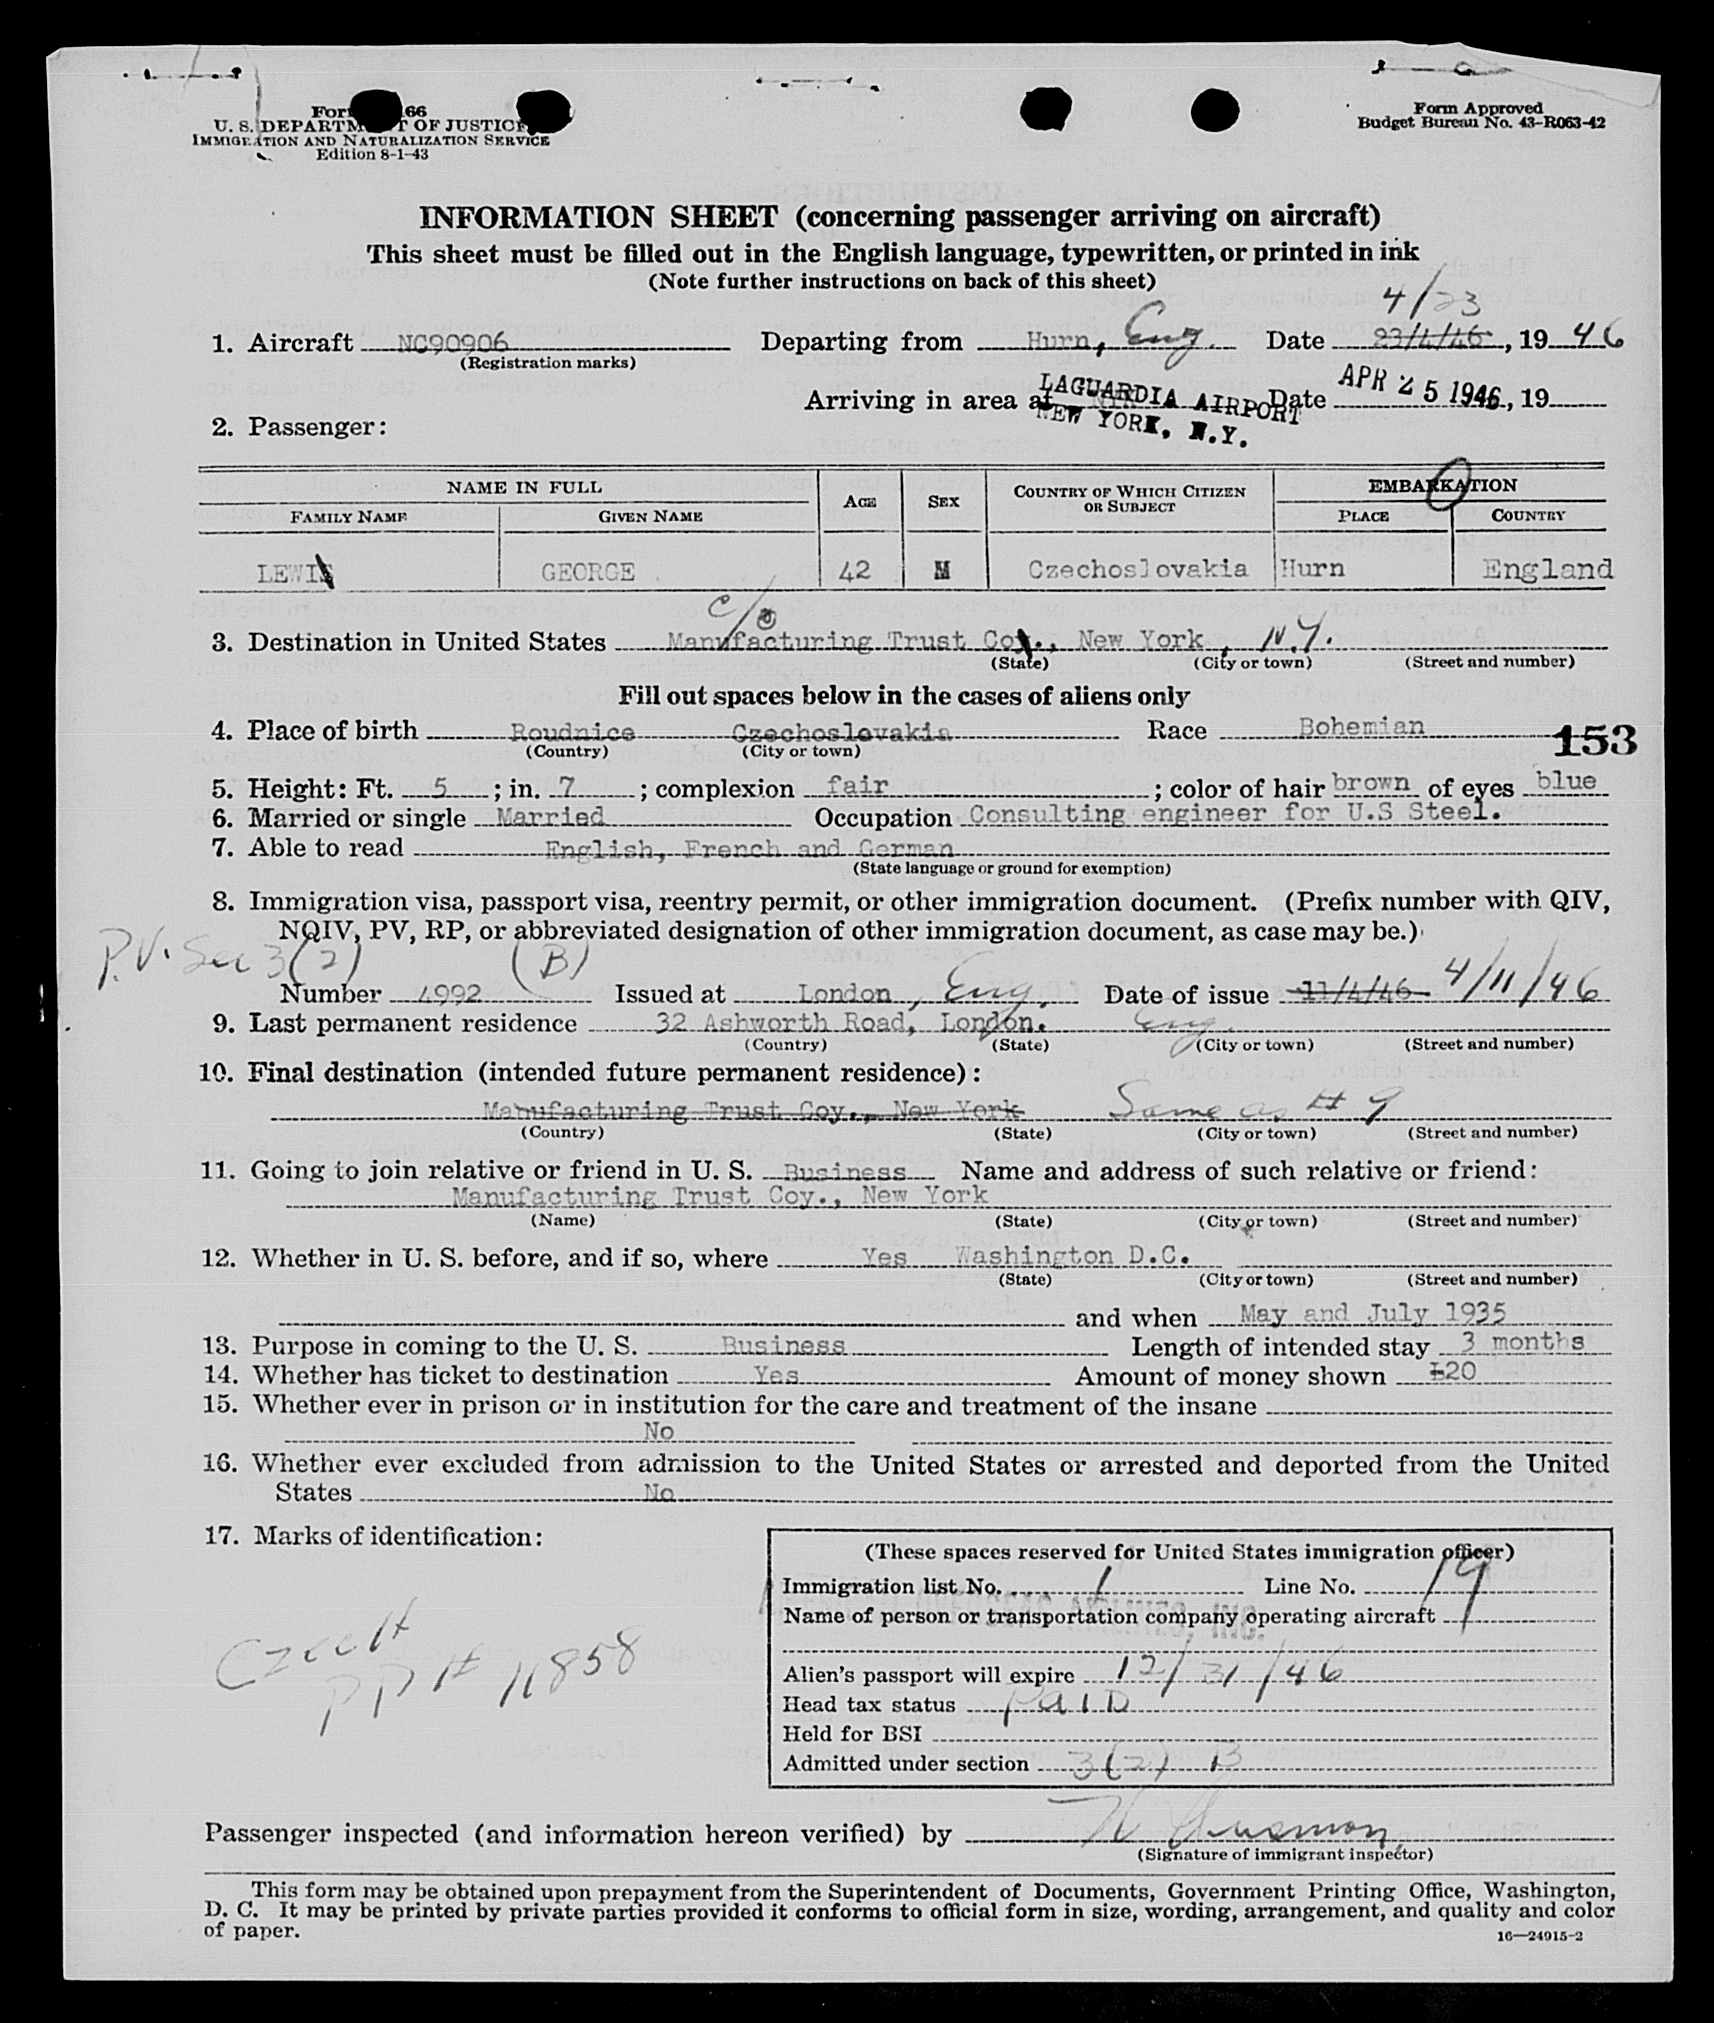 Form 66
U. S. DEPARTMENT OF JUSTICE
IMMIGRATION AND NATURALIZATION SERVICE
Edition 8-1-43
Form Approved
Budget Bureau No. 43-R063-42
INFORMATION SHEET (concerning passenger arriving on aircraft)
This sheet must be filled out in the English language, typewritten, or printed in ink
(Note further instructions on back of this sheet)
4/23
1. Aircraft NC90906 Departing from Hurn, Eng. Date 23/4/46, 19 46
(Registration marks)
Arriving in area at LAGUARDIA AIRPORT NEW YORK, N.Y. Date APR 25 1946, 19
2. Passenger:
NAME IN FULL AGE SEX COUNTRY OF WHICH CITIZEN OR SUBJECT EMBARKATION
FAMILY NAME GIVEN NAME PLACE COUNTRY
LEWIS GEORGE 42 M Czechoslovakia Hurn England
c/o
3. Destination in United States Manufacturing Trust Coy., New York, N.Y.
(State) (City or town) (Street and number)
Fill out spaces below in the cases of aliens only
4. Place of birth Roudnice Czechoslovakia Race Bohemian
(Country) (City or town)
153
5. Height: Ft. 5; in. 7; complexion fair; color of hair brown of eyes blue
6. Married or single Married Occupation Consulting engineer for U.S Steel.
7. Able to read English, French and German
(State language or ground for exemption)
8. Immigration visa, passport visa, reentry permit, or other immigration document. (Prefix number with QIV,
NQIV, PV, RP, or abbreviated designation of other immigration document, as case may be.)
P.V. Sec 3(2) (B)
Number 4992 Issued at London, Eng. Date of issue 11/4/46 4/11/46
9. Last permanent residence 32 Ashworth Road, London. Eng.
(Country) (State) (City or town) (Street and number)
10. Final destination (intended future permanent residence):
Manufacturing Trust Coy., New York Same as # 9
(Country) (State) (City or town) (Street and number)
11. Going to join relative or friend in U. S. Business Name and address of such relative or friend:
Manufacturing Trust Coy., New York
(Name) (State) (City or town) (Street and number)
12. Whether in U. S. before, and if so, where Yes Washington D.C.
(State) (City or town) (Street and number)
and when May and July 1935
13. Purpose in coming to the U. S. Business Length of intended stay 3 months
14. Whether has ticket to destination Yes Amount of money shown £20
15. Whether ever in prison or in institution for the care and treatment of the insane
No
16. Whether ever excluded from admission to the United States or arrested and deported from the United
States No
17. Marks of identification:
(These spaces reserved for United States immigration officer)
Immigration list No. 1 Line No. 19
Name of person or transportation company operating aircraft
Czech
PP # 11858
Alien's passport will expire 12/31/46
Head tax status PAID
Held for BSI
Admitted under section 3(2) B
Passenger inspected (and information hereon verified) by
(Signature of immigrant inspector)
This form may be obtained upon prepayment from the Superintendent of Documents, Government Printing Office, Washington,
D. C. It may be printed by private parties provided it conforms to official form in size, wording, arrangement, and quality and color
of paper.
16—24915-2